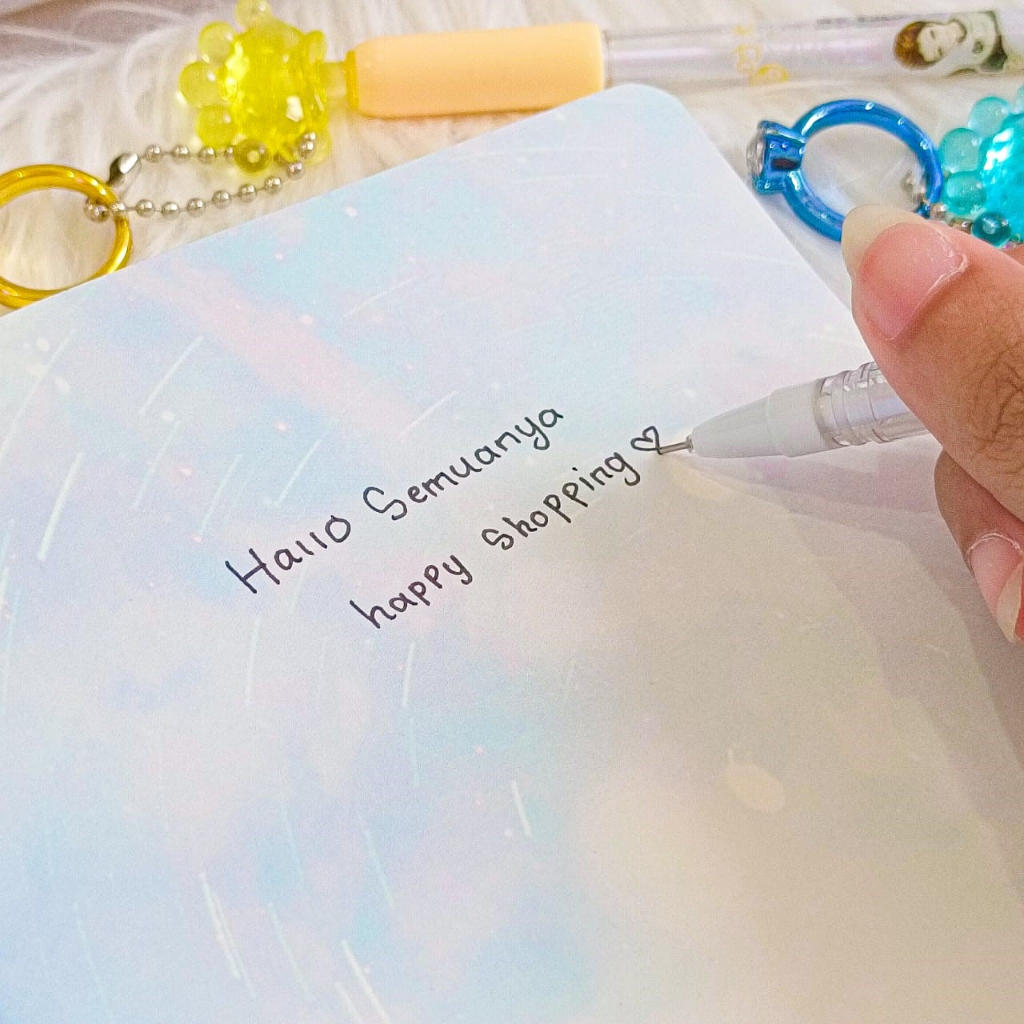 Hallo Semuanya
happy shopping ♡